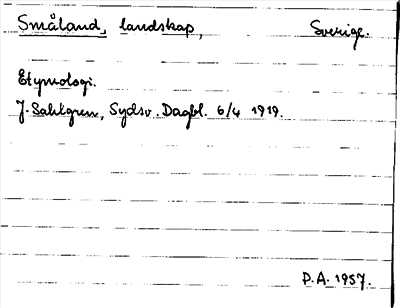 Småland, landskap, Sverige.
Etymologi.
J. Sahlgren, Sydsv. Dagbl. 6/4 1919.
P.A. 1957.